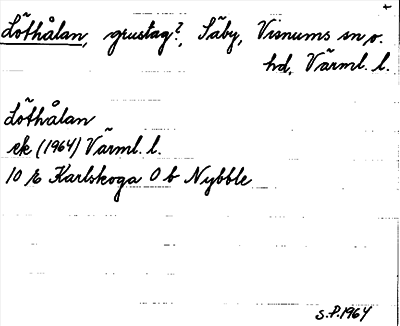 Löthålan, grustag?, Säby, Visnums sn o.
hd, Värml. l.
Löthålan
ek (1964) Värml. l.
10 E Karlskoga 0 b Nybble
S.P. 1964